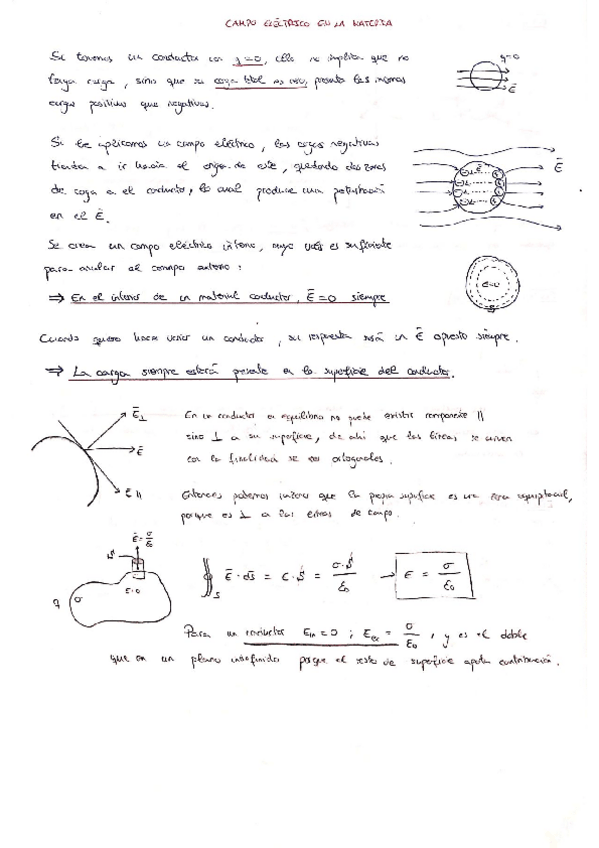 CAMPO ELÉCTRICO EN LA MATERIA
Si tenemos un conductor con q=0, ello no implica que no
tenga carga, sino que su carga total es nula, presenta las mismas
cargas positivas que negativas.
q=0
Ē
Si le aplicamos un campo eléctrico, las cargas negativas
tienden a ir hacia el origen de este, quedando dos zonas
de carga en el conductor, lo cual produce una polarización
en el Ē.
Ē
Se crea un campo eléctrico interno, cuyo valor es suficiente
para anular al campo externo:
⇒ En el interior de un material conductor, Ē=0 siempre
E=0
Cuando quiero hacer variar un conductor, su respuesta será un Ē opuesto siempre.
⇒ La carga siempre estará presente en la superficie del conductor.
Ē⊥
Ē
E ||
En un conductor en equilibrio no puede existir componente ||
sino ⊥ a su superficie, de ahí que las líneas se curven
con la finalidad de ser ortogonales.
Entonces podemos intuir que la propia superficie es un área equipotencial,
porque es ⊥ a las líneas de campo.
Ē = σ/ε₀
S
E=0
q
σ
∮s Ē · ds̄ = E · S = σ·S/ε₀ → E = σ/ε₀
Para un conductor Ein = 0 ; Eex = σ/ε₀, y es el doble
que en un plano indefinido porque el resto de superficie aporta contribución.